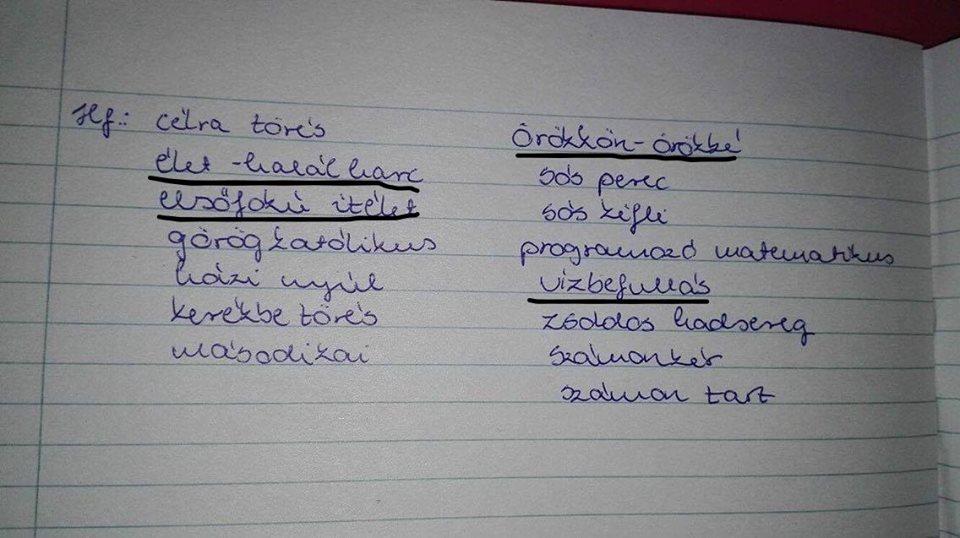 Hf.: célra törés
élet-halál harc
elsőfokú ítélet
görög katólikus
házi nyúl
kerékbe törés
másodikai
örökkön-örökké
sós perec
sós kifli
programozó matematikus
vízbefullás
zsoldos hadsereg
számonkér
számon tart